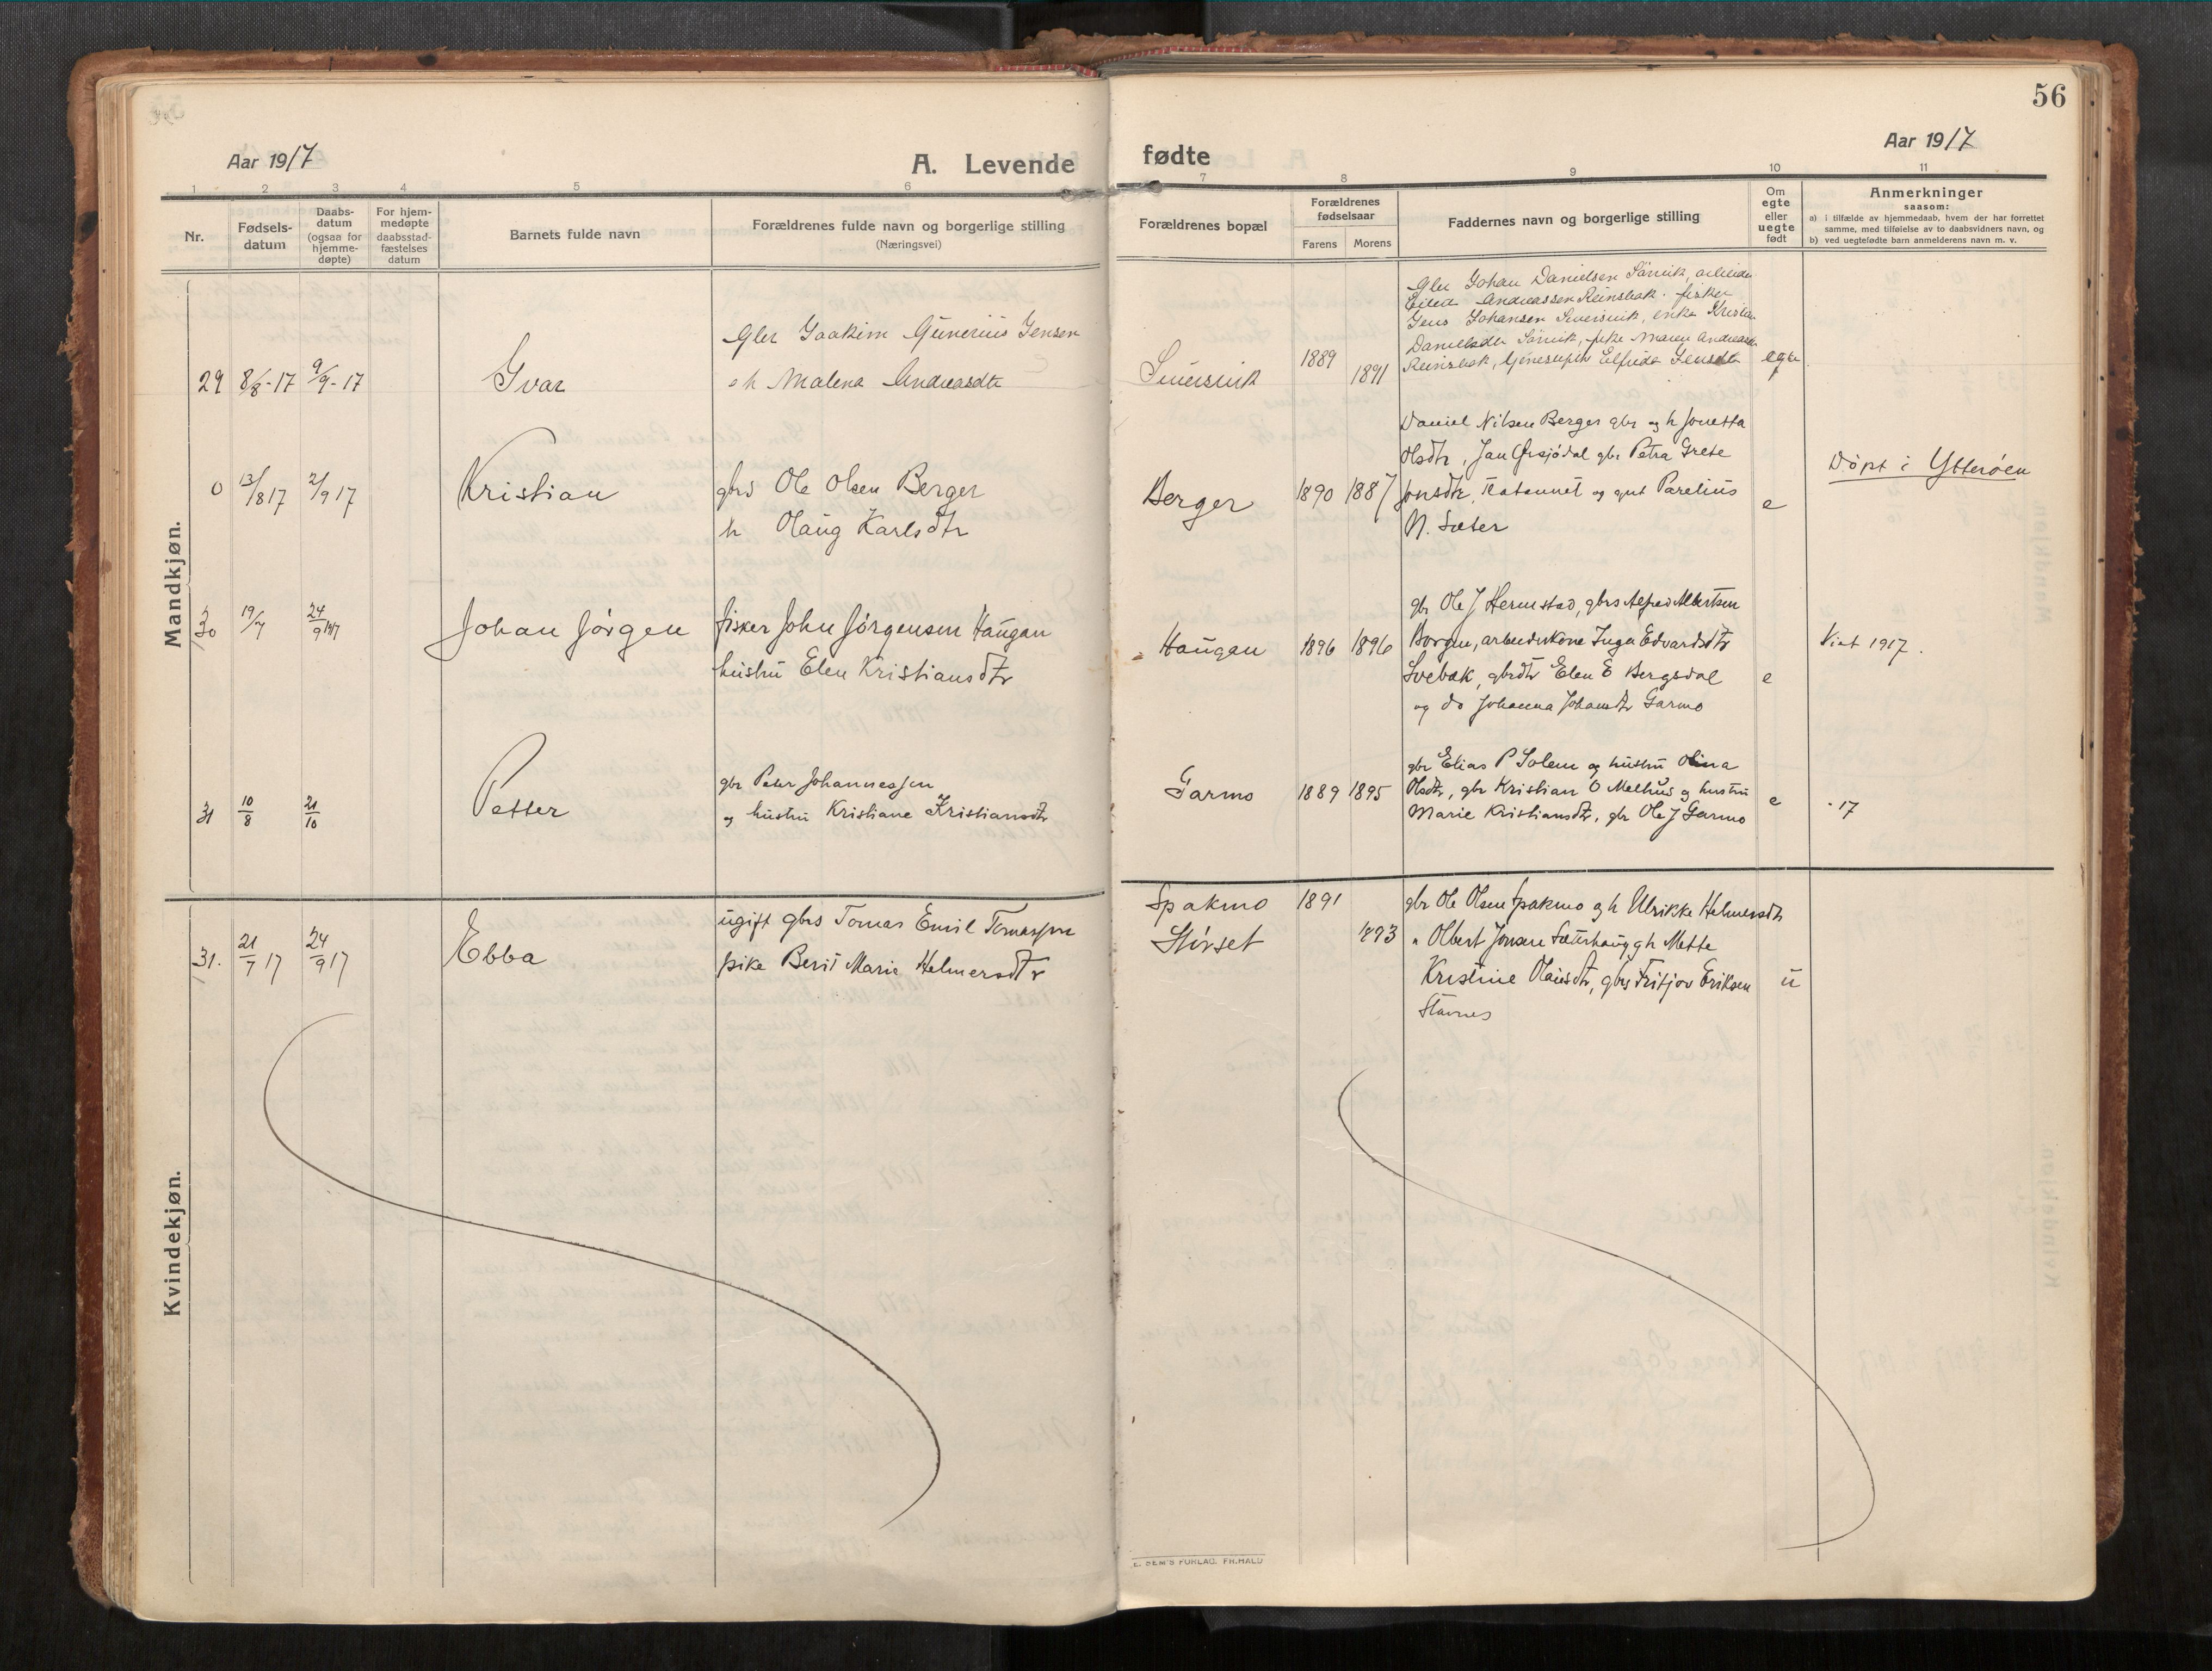 56
Aar 1917
A. Levende
fødte
Aar 1917
1 2 3 4 5 6 7 8 9 10 11
Nr.
Fødsels-
datum
Daabs-
datum
(ogsaa for
hjemme-
døpte)
For hjem-
medøpte
daabsstad-
fæstelses
datum
Barnets fulde navn
Forældrenes fulde navn og borgerlige stilling
(Næringsvei)
Forældrenes bopæl
Forældrenes
fødselsaar
Farens Morens
Faddernes navn og borgerlige stilling
Om
egte
eller
uegte
født
Anmerkninger
saasom:
a) i tilfælde av hjemmedaab, hvem der har forrettet
samme, med tilføielse av to daabsvidners navn, og
b) ved uegtefødte barn anmelderens navn m. v.
Mandkjøn.
29 8/8-17 9/9-17
Ivar
Gbr Joakim Gunerius Jensen
o h Malena Andreasdtr
1889 1891
Gbr Johan Danielsen Sörvik, arbeider
Andreassen Reinsbak, fisker
Jens Johansen, enke Kristia
Danielsdtr Sörvik, pike Maren Andreasdtr
Reinsbak, Elfrida Jensdtr
egte
0 13/8 17 2/9 17
Kristian
gbrs Ole Olsen Berger
h Olaug Karlsdtr
Berger 1890 1887
Daniel Nilsen Berger gbr og h Jonetta
Olsdtr, Jan gbr Petra Grete
Jonsdtr, og gut Parelius
N. Sæter
e
Döpt i Ytteröen
30 19/7 24/9 1917
Johan Jörgen
fisker John Jörgensen Haugan
hustru Elen Kristiansdtr
Haugan 1896 1896
gbr Ole J Hermstad, gbrs Alfred Albertsen
Borgen, arbeiderkone Inga Edvardsdtr
Svebak, gbrdtr Elen E Bergsdal
og do Johanna Johansdtr Garmo
e
Viet 1917.
31 10/8 21/10
Petter
gbr Peter Johannessen
og hustru Kristiane Kristiansdtr
Garmo 1889 1895
gbr Elias P Solem og hustru Olina
Olsdtr, gbr Kristian O Melhus og hustru
Marie Kristiansdtr, gbr Ole J Garmo
e
-17
Kvindekjøn.
31. 21/7 17 24/9 17
Ebba
ugift gbrs Tomas Emil Tomassen
pike Berit Marie Helmersdtr
Spakmo 1891
Störset 1893
gbr Ole Olsen Spakmo og h Ulrikke Helmersdtr
" Olbert Jonsen Sæterhaug g h Mette
Kristine Olausdtr, gbrs Fritjov Eriksen
Stavnes
u
E. SEM'S FORLAG. FR.HALD